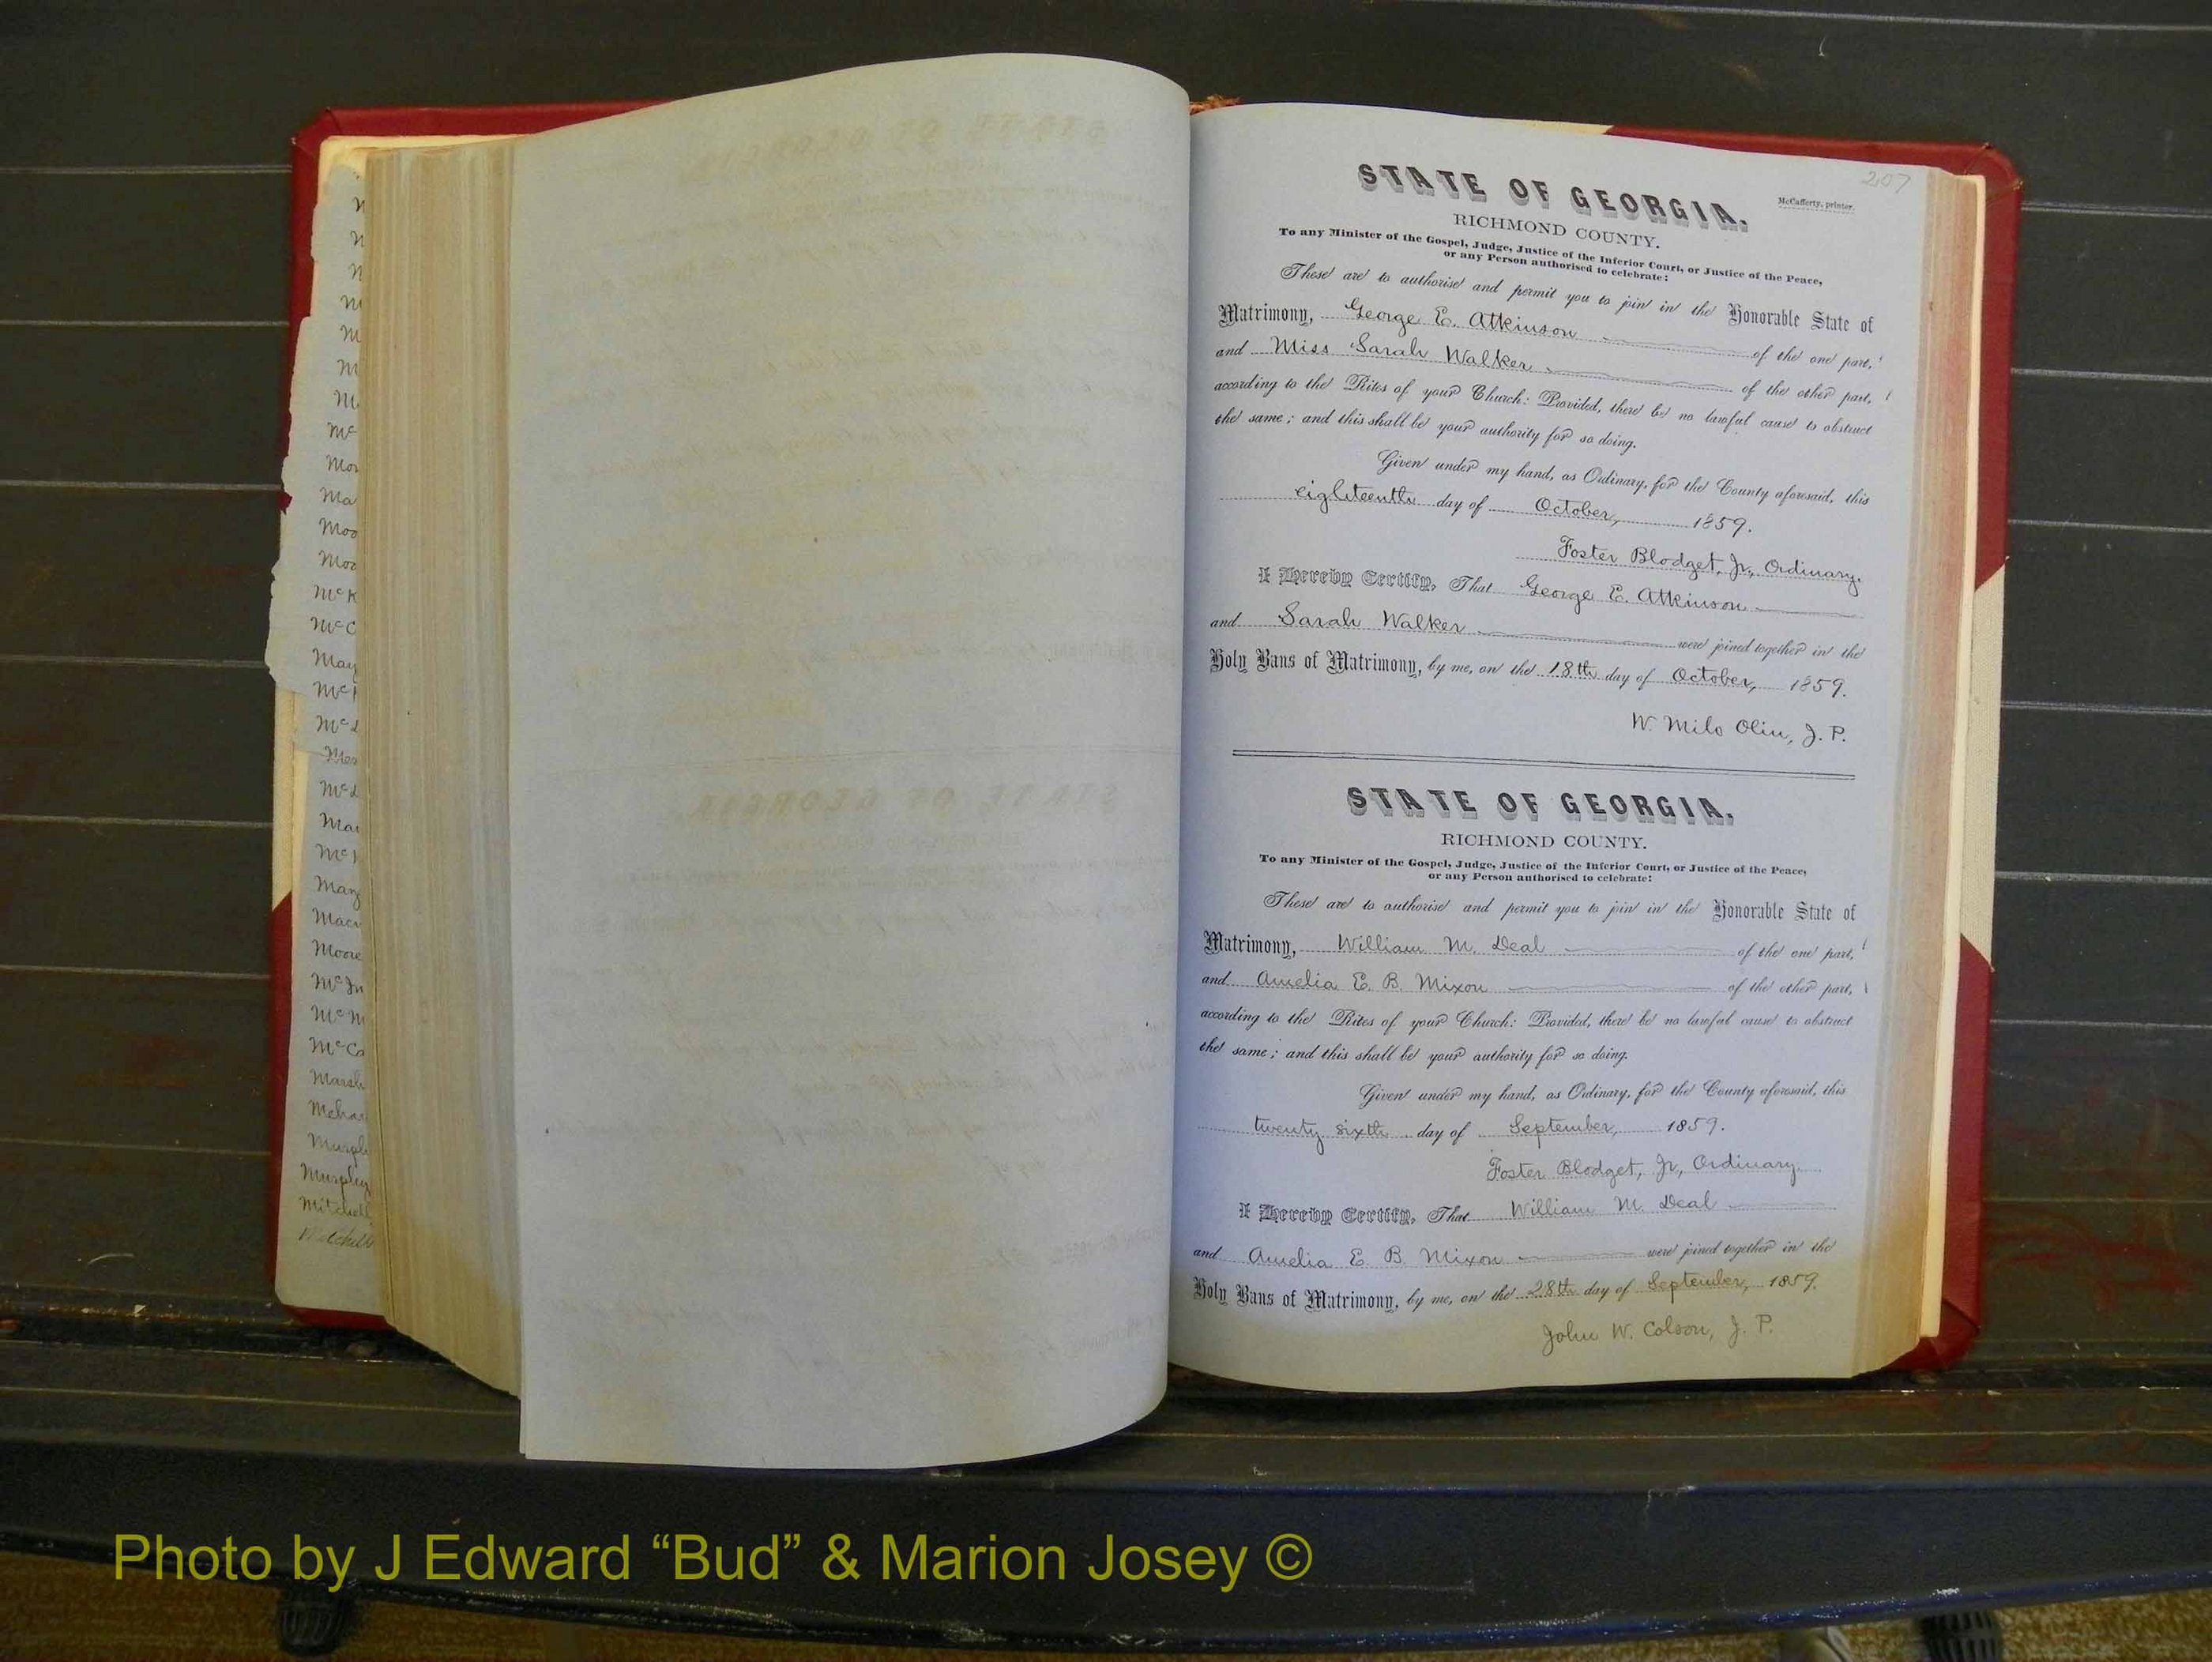 207
STATE OF GEORGIA.
McCafferty, printer.
RICHMOND COUNTY.
To any Minister of the Gospel, Judge, Justice of the Inferior Court, or Justice of the Peace,
or any Person authorised to celebrate:
These are to authorise and permit you to join in the Honorable State of
Matrimony, George E. Atkinson of the one part,
and Miss Sarah Walker of the other part,
according to the Rites of your Church: Provided, there be no lawful cause to obstruct
the same; and this shall be your authority for so doing.
Given under my hand, as Ordinary, for the County aforesaid, this
eighteenth day of October, 1859.
Foster Blodget, Jr., Ordinary.
I Hereby Certify, That George E. Atkinson
and Sarah Walker were joined together in the
Holy Bans of Matrimony, by me, on the 18th day of October, 1859.
W. Milo Olin, J. P.
STATE OF GEORGIA.
RICHMOND COUNTY.
To any Minister of the Gospel, Judge, Justice of the Inferior Court, or Justice of the Peace,
or any Person authorised to celebrate:
These are to authorise and permit you to join in the Honorable State of
Matrimony, William M. Deal of the one part,
and Amelia E. B. Mixon of the other part,
according to the Rites of your Church: Provided, there be no lawful cause to obstruct
the same; and this shall be your authority for so doing.
Given under my hand, as Ordinary, for the County aforesaid, this
twenty sixth day of September, 1859.
Foster Blodget, Jr., Ordinary.
I Hereby Certify, That William M. Deal
and Amelia E. B. Mixon were joined together in the
Holy Bans of Matrimony, by me, on the 28th day of September, 1859.
John W. Colson, J. P.
Moore
Murphy
Mitchell
Mitchell
Photo by J Edward “Bud” & Marion Josey ©